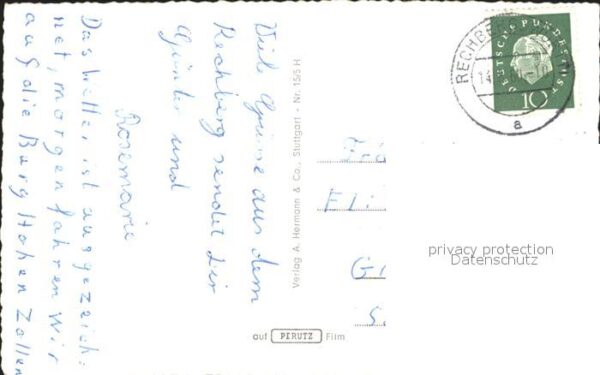 Viele Grüsse aus dem
Rechberg sendet Dir
Günter und
Rosemarie
Das Wetter ist ausgezeich:
net, morgen fahren Wir
auf die Burg Hohen Zollen
Verlag A. Hermann & Co., Stuttgart - Nr. 15/5 H
auf PERUTZ Film
DEUTSCHE BUNDESPOST
10
RECHBERG
a
privacy protection
Datenschutz